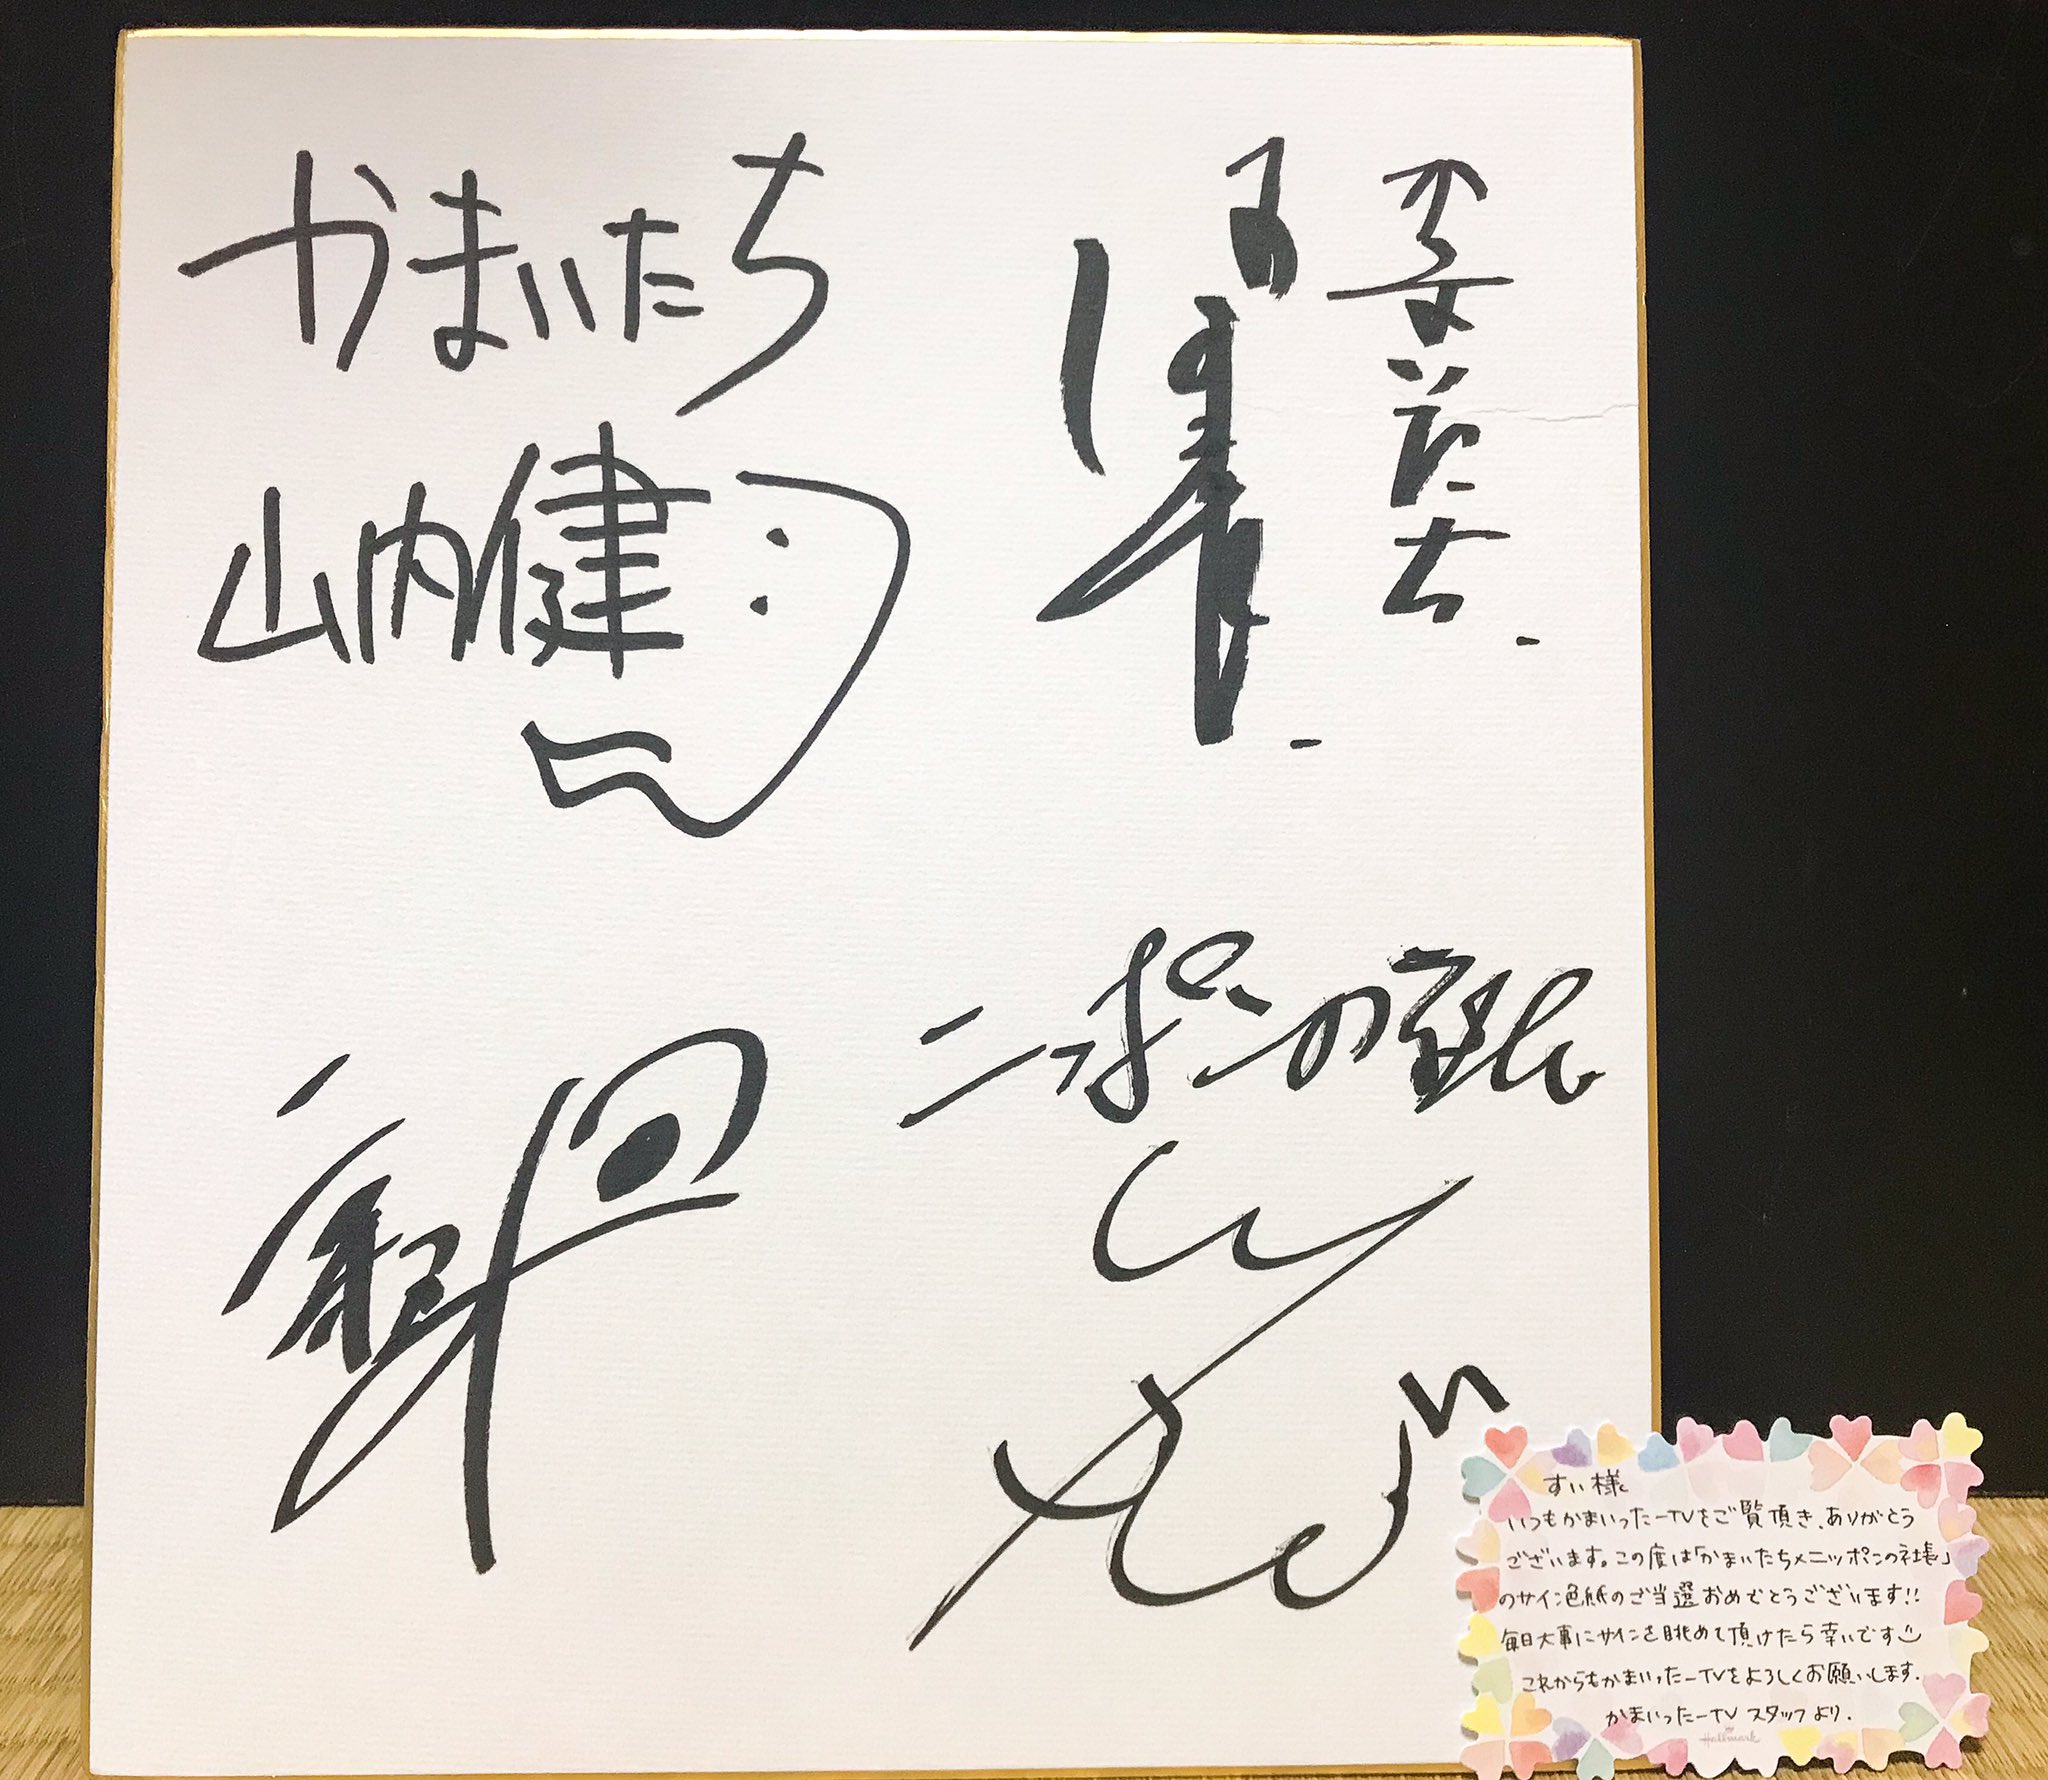 かまいたち
山内健司
かまいたち
ニッポンの社長
すい様
いつもかまいったーTVをご覧頂き、ありがとう
ございます。この度は「かまいたち×ニッポンの社長」
のサイン色紙のご当選おめでとうございます!!
毎日大事にサインを眺めて頂けたら幸いです
これからもかまいったーTVをよろしくお願いします.
かまいったーTV スタッフより.
Hallmark